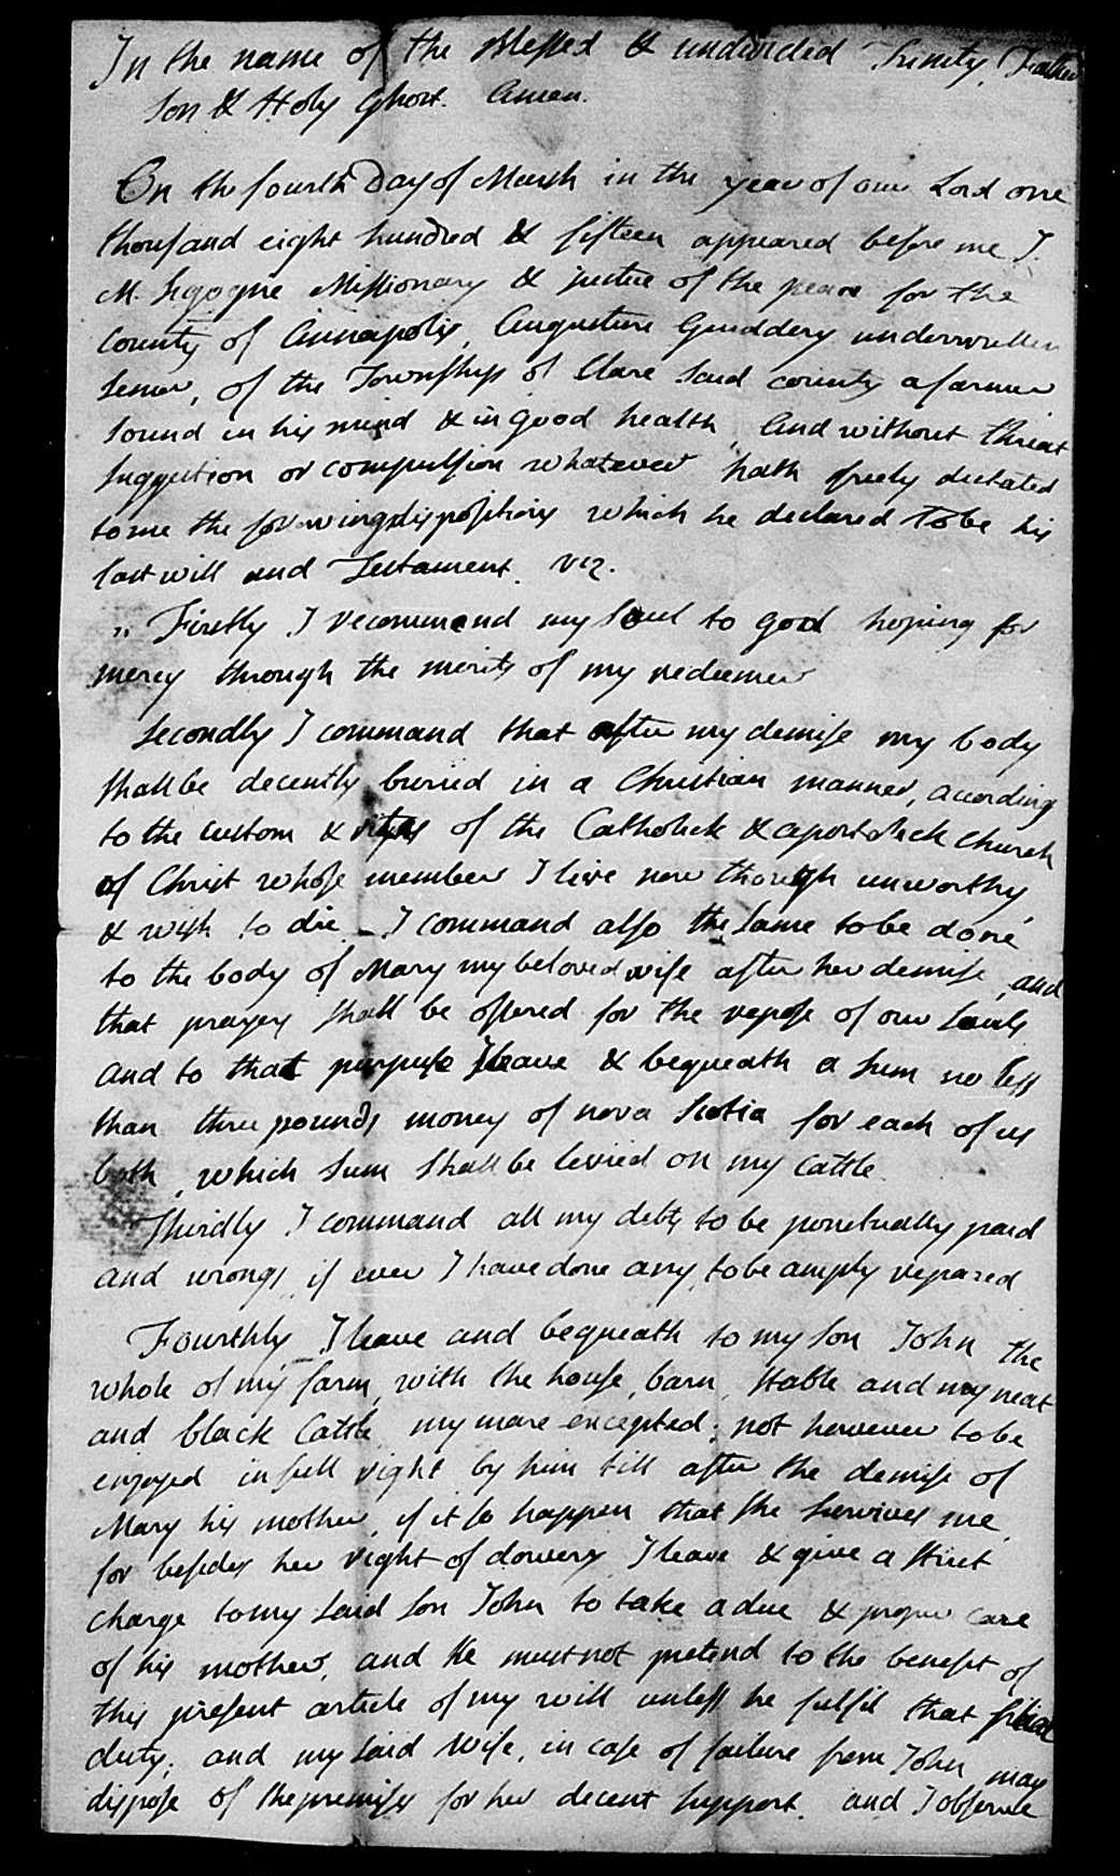 In the name of the Blessed & undivided Trinity, Father
Son & Holy Ghost. Amen.
On the fourth Day of March in the year of our Lord one
thousand eight hundred & fifteen appeared before me J.
M. Sigogne Missionary & justice of the peace for the
County of Annapolis, Augustine Guiddery underwritten
Senior, of the Township of Clare Said county a farmer
Sound in his mind & in good health, and without threat
Suggestion or compulsion whatever hath freely dictated
to me the following dispositions which he declared to be his
last will and Testament. viz.
„ Firstly I recommend my Soul to god hoping for
mercy through the merits of my redeemer
Secondly I command that after my demise my body
shall be decently buried in a Christian manner, according
to the custom & rites of the Catholick & apostolick church
of Christ whose member I live now though unworthy,
& wish to die _ I command also the Same to be done
to the body of Mary my beloved wife after her demise, and
that prayers shall be offered for the repose of our Souls
and to that purpose I leave & bequeath a Sum no less
than three pounds money of nova Scotia for each of us
both, which Sum shall be levied on my Cattle.
Thirdly I command all my debts to be punctually paid
and wrongs, if ever I have done any, to be amply repared
Fourthly I leave and bequeath to my Son John the
whole of my farm, with the house, barn, stable and my neat
and black Cattle my mare excepted; not however to be
enjoyed in full right by him till after the demise of
Mary his mother, if it so happen that she Survives me,
for besides her right of dowery I leave & give a strict
charge to my Said Son John to take a due & proper care
of his mother, and He must not pretend to the benefit of
this present article of my will unless he fulfil that filial
duty; and my Said Wife, in case of failure from John may
dispose of the premises for her decent Support. and I observe